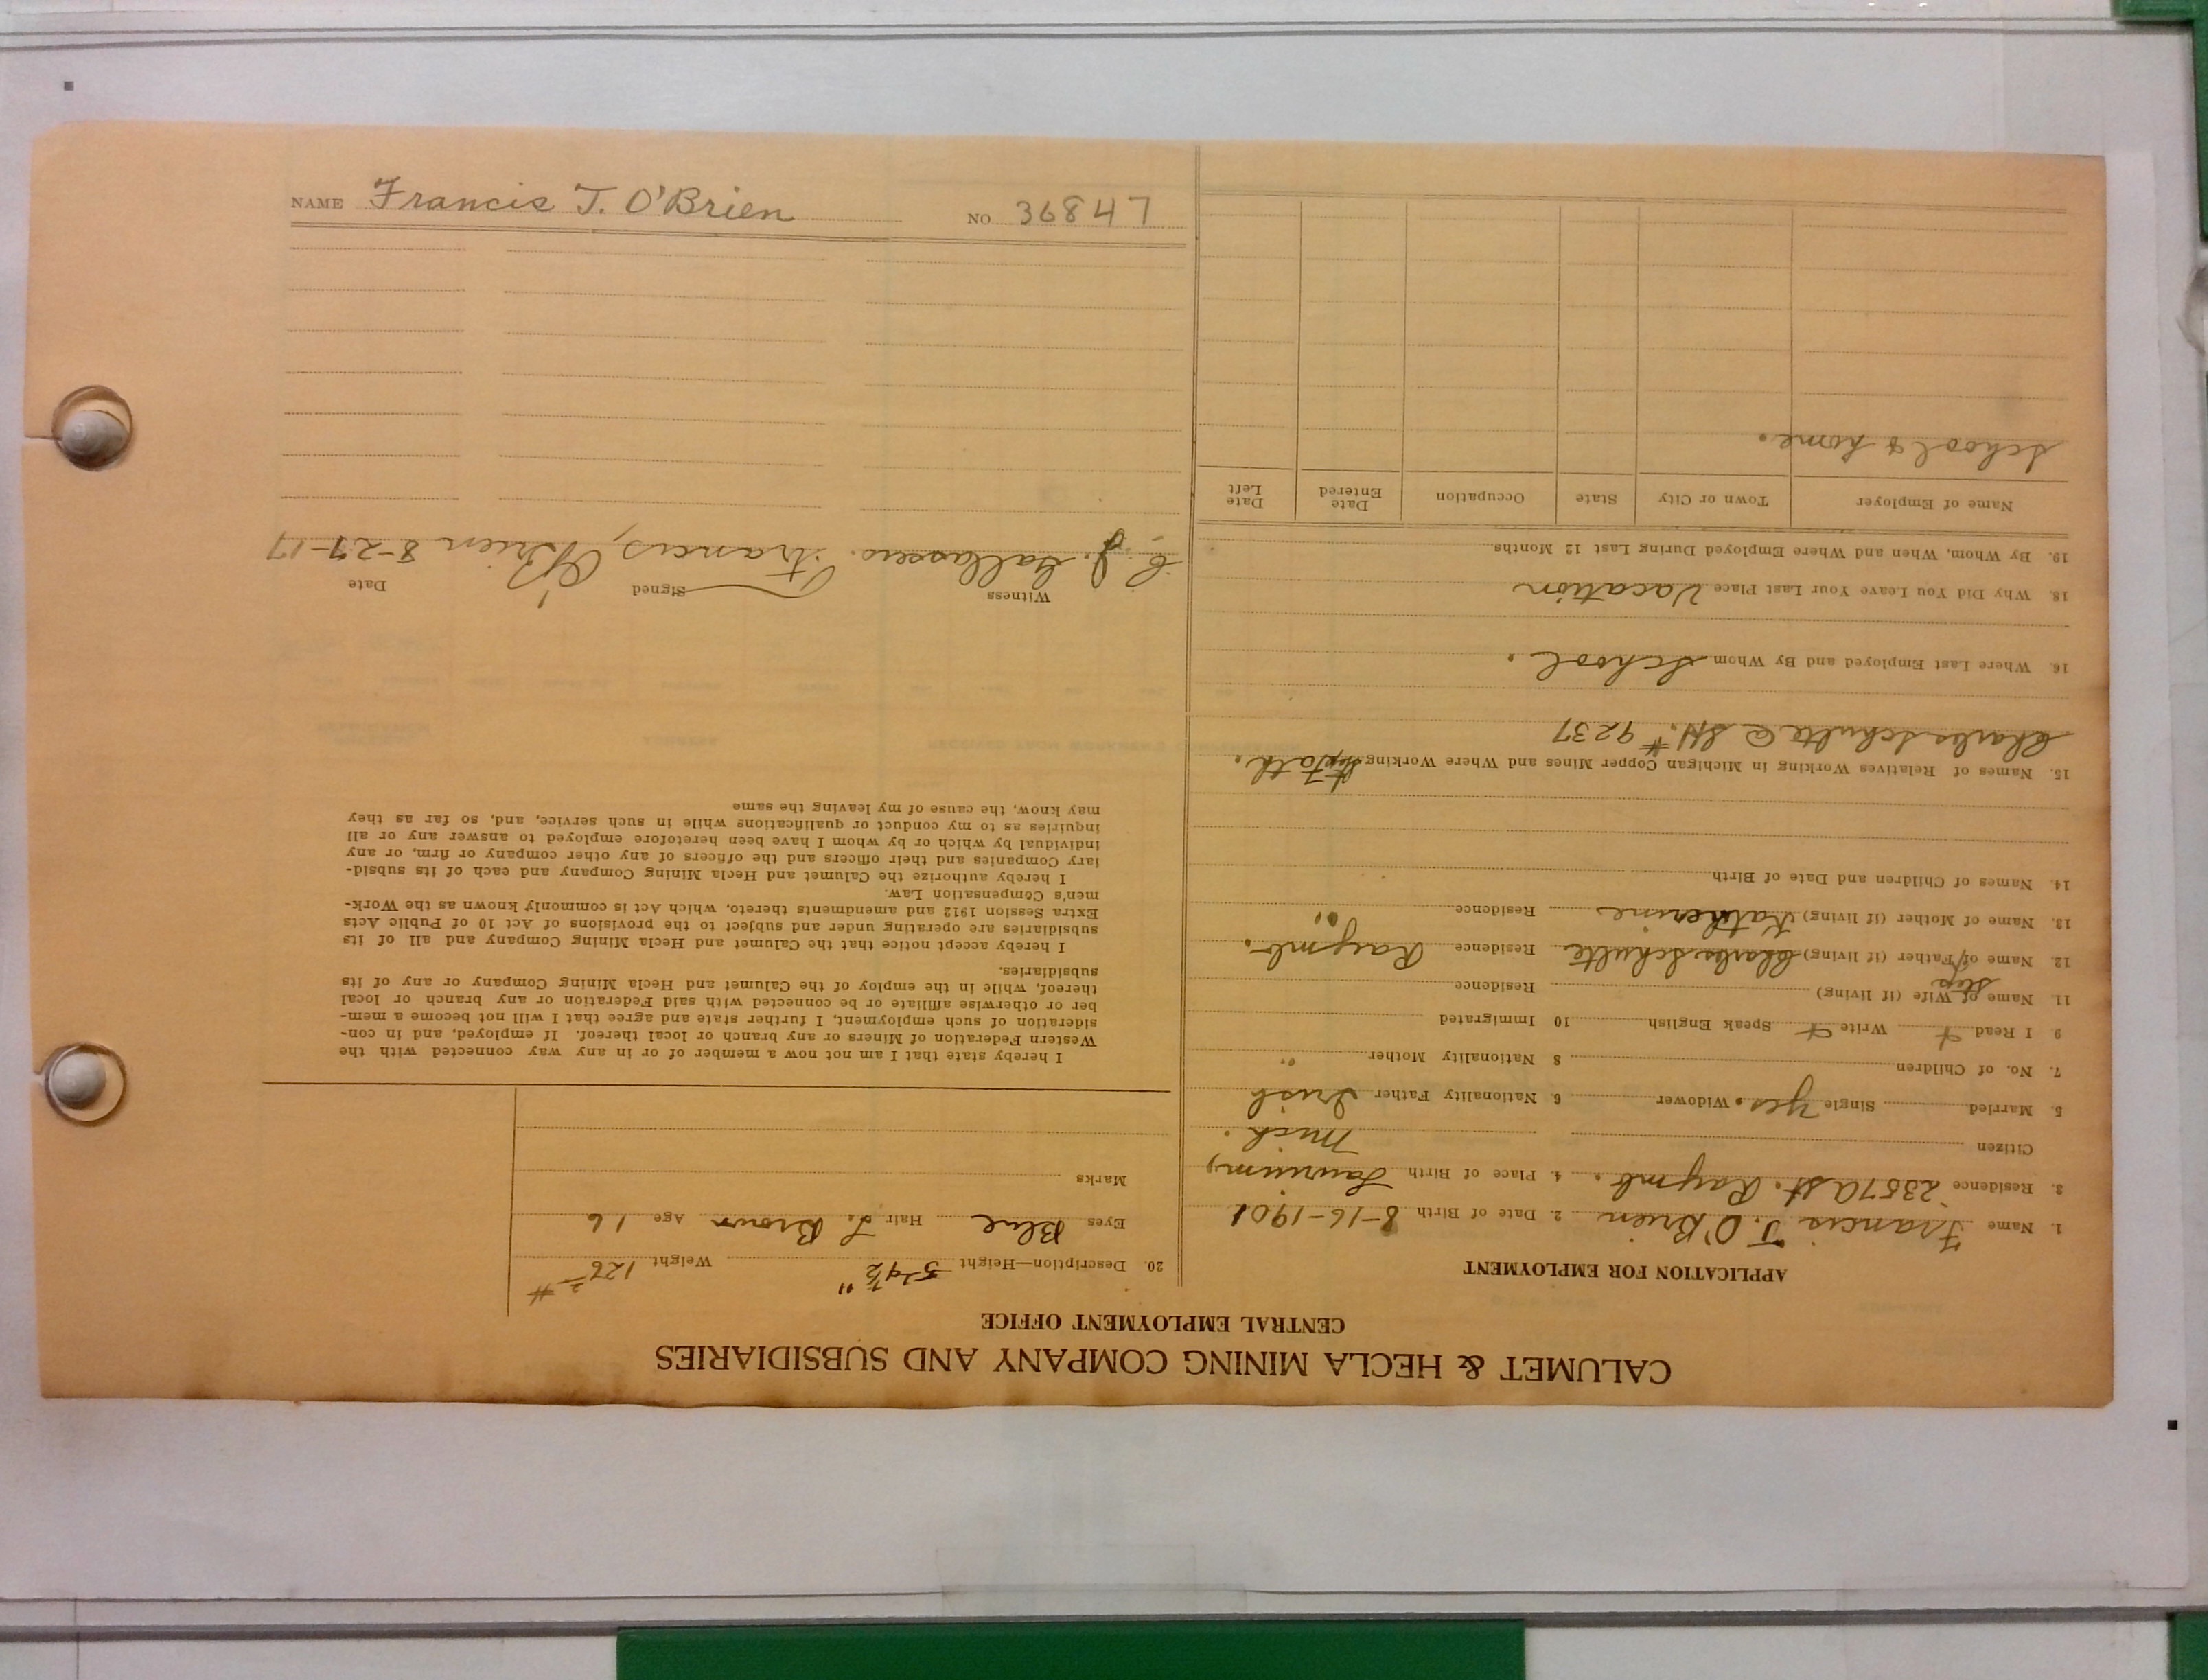 CALUMET & HECLA MINING COMPANY AND SUBSIDIARIES
CENTRAL EMPLOYMENT OFFICE
APPLICATION FOR EMPLOYMENT
1. Name Francis T. O'Brien 2. Date of Birth 8-16-1901
3. Residence 2357 A St. Raymb. 4. Place of Birth Laurium,
Citizen Mich.
5. Married Single Yes. Widower 6. Nationality Father Irish
7. No. of Children 8 Nationality Mother "
9 I Read Write Speak English 10 Immigrated
11. Name of Wife (if living) Residence
Step
12. Name of Father (if living) Charles Schulte Residence Raymb.
13. Name of Mother (if living) Katherine Residence "
14. Names of Children and Date of Birth
15. Names of Relatives Working in Michigan Copper Mines and Where Working Step Fath.
Charles Schulte @ SH. # 9237
16. Where Last Employed and By Whom School.
18. Why Did You Leave Your Last Place Vacation
19. By Whom, When and Where Employed During Last 12 Months
Name of Employer Town or City State Occupation Date Entered Date Left
School & home.
20. Description—Height 5'4½" Weight 126 #
Eyes Blue Hair L. Brown Age 16
Marks
I hereby state that I am not now a member of or in any way connected with the
Western Federation of Miners or any branch or local thereof. If employed, and in con-
sideration of such employment, I further state and agree that I will not become a mem-
ber or otherwise affiliate or be connected with said Federation or any branch or local
thereof, while in the employ of the Calumet and Hecla Mining Company or any of its
subsidiaries.
I hereby accept notice that the Calumet and Hecla Mining Company and all of its
subsidiaries are operating under and subject to the provisions of Act 10 of Public Acts
Extra Session 1912 and amendments thereto, which Act is commonly known as the Work-
men's Compensation Law.
I hereby authorize the Calumet and Hecla Mining Company and each of its subsid-
iary Companies and their officers and the officers of any other company or firm, or any
individual by which or by whom I have been heretofore employed to answer any or all
inquiries as to my conduct or qualifications while in such service, and, so far as they
may know, the cause of my leaving the same
Witness Signed Date
Francis, O'Brien 8-27-17
NAME Francis T. O'Brien NO. 36847